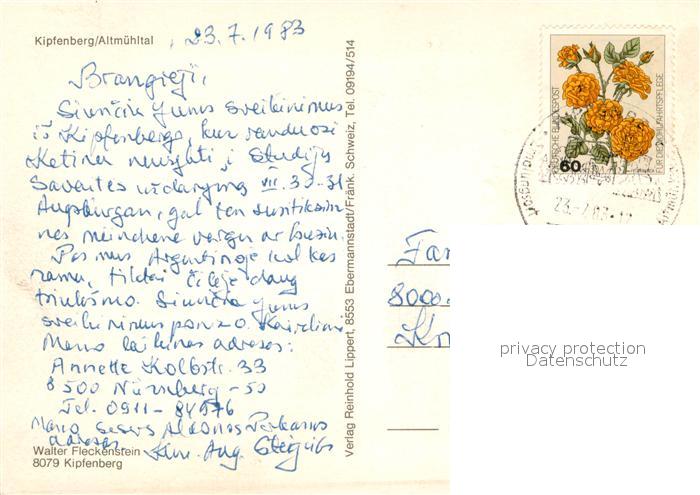 Kipfenberg/Altmühltal
23.7.1983
Brangieji,
Siunčiu Jums sveikinimus
iš Kipfenbergo, kur randuosi
Ketinu nuvykti į Studijų
Savaitės uždarymą VII. 30-31
Augsburgan, gal ten susitiksim
nes Münchene vargu ar busiu.
Pas mus Argentinoje kol kas
ramu, tiktai Čilėje daug
triukšmo. Siunčiu Jums
sveikinimus
Mano laikinas adresas:
Annette Kolbstr. 33
8500 Nürnberg - 50
Tel. 0911 - 84976
Mano sesers Aldonos
adresas
Kun. Aug.
Walter Fleckenstein
8079 Kipfenberg
Verlag Reinhold Lippert, 8553 Ebermannstadt/Fränk. Schweiz, Tel. 09194/514
DEUTSCHE BUNDESPOST
FÜR DIE WOHLFAHRTSPFLEGE
60
23.-7.83-12
Fam
8000
privacy protection
Datenschutz